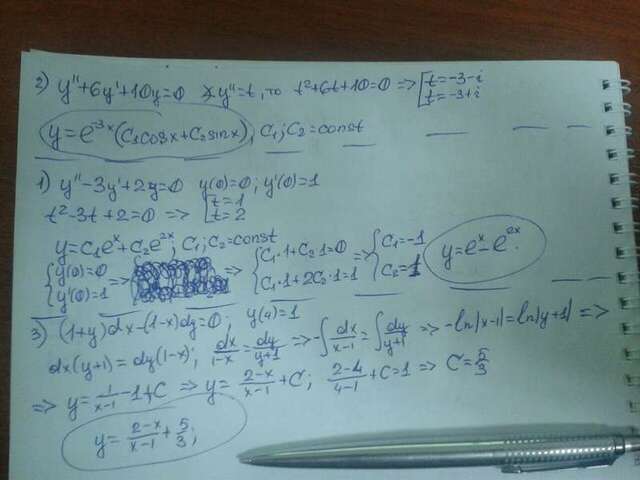 2) y''+6y'+10y=0 ⋊ y''=t, то t²+6t+10=0 => [t=-3-i
t=-3+i
y=e^{-3x}(C₁cosx+C₂sinx), C₁;C₂=const
1) y''-3y'+2y=0 y(0)=0; y'(0)=1
t²-3t+2=0 => [t=1
t=2
y=C₁e^x+C₂e^{2x}; C₁;C₂=const
{y(0)=0 => => {C₁·1+C₂·1=0 => {C₁=-1 y=e^x-e^{2x}.
y'(0)=1 C₁·1+2C₂·1=1 C₂=1
3) (1+y)dx-(1-x)dy=0; y(4)=1
dx(y+1)=dy(1-x); dx/1-x=dy/y+1 => -∫dx/x-1=∫dy/y+1 => -ln|x-1|=ln|y+1| =>
=> y=1/x-1 -1+C => y=2-x/x-1+C; 2-4/4-1+C=1 => C=5/3
y=2-x/x-1+5/3;